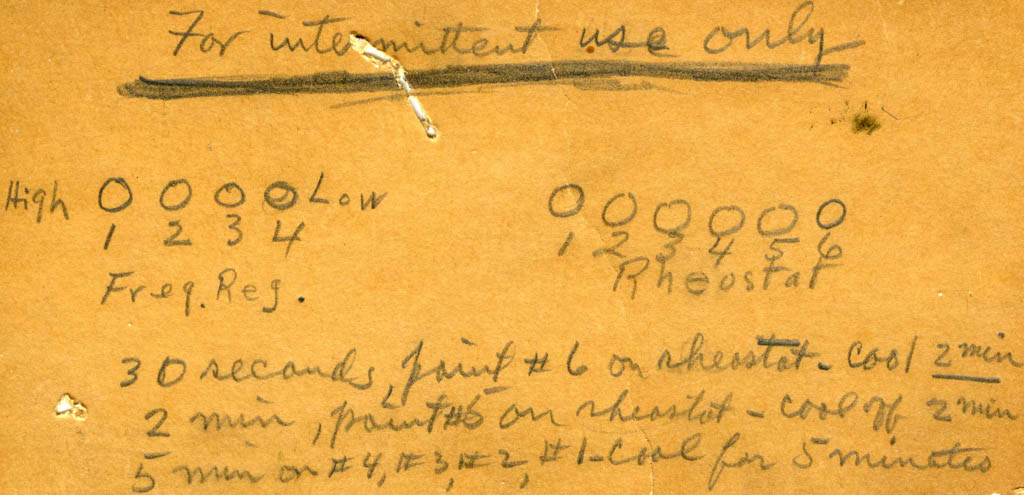 For intermittent use only
High O O O O Low O O O O O O
1 2 3 4 1 2 3 4 5 6
Freq. Reg. Rheostat
30 seconds, point #6 on rheostat - cool 2 min
2 min, point #5 on rheostat - cool off 2 min
5 min on #4, #3, #2, #1 - cool for 5 minutes